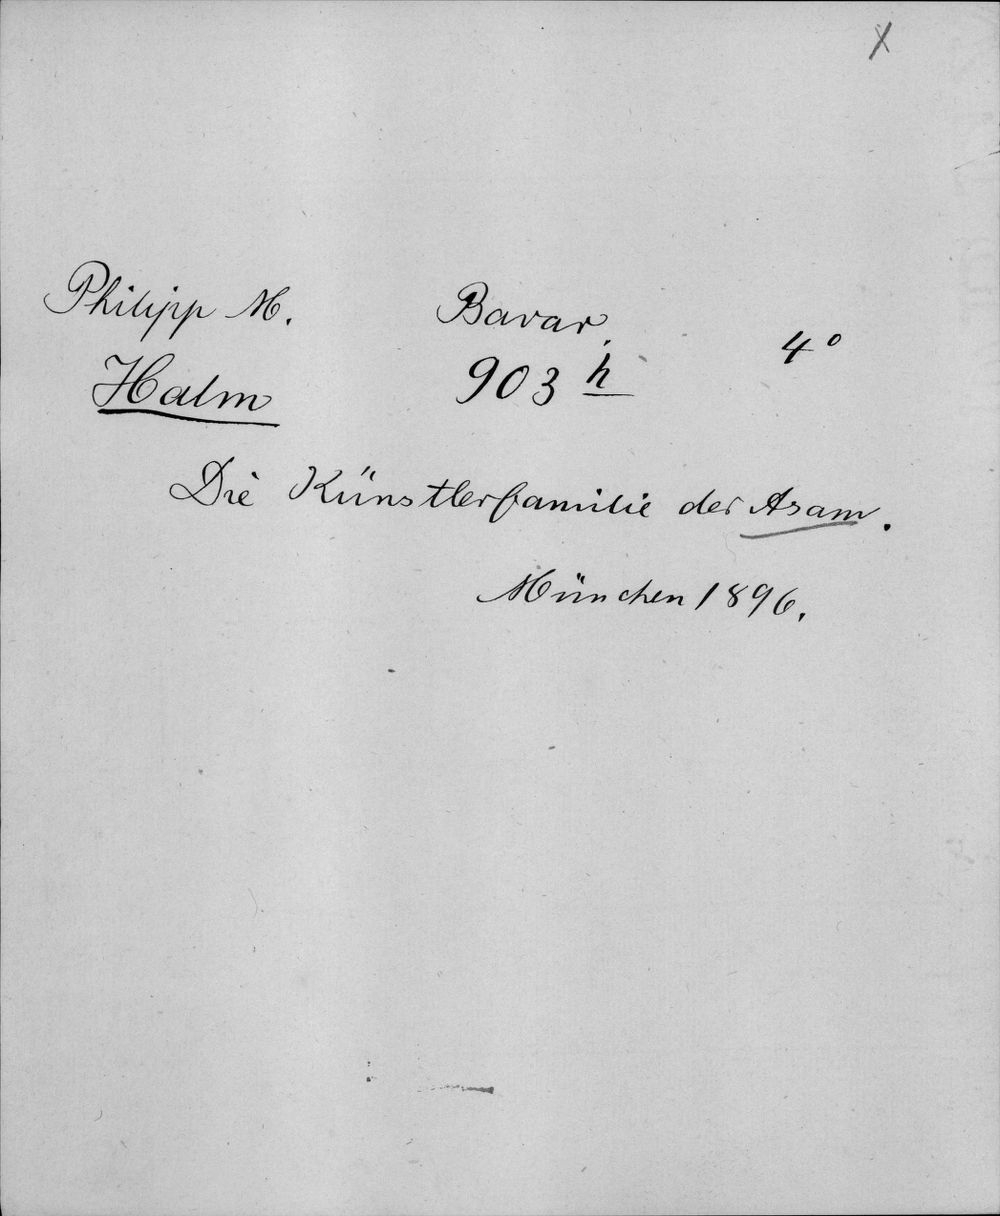 X
Philipp M. Bavar.
Halm 903 h 4°
Die Künstlerfamilie der Asam.
München 1896.